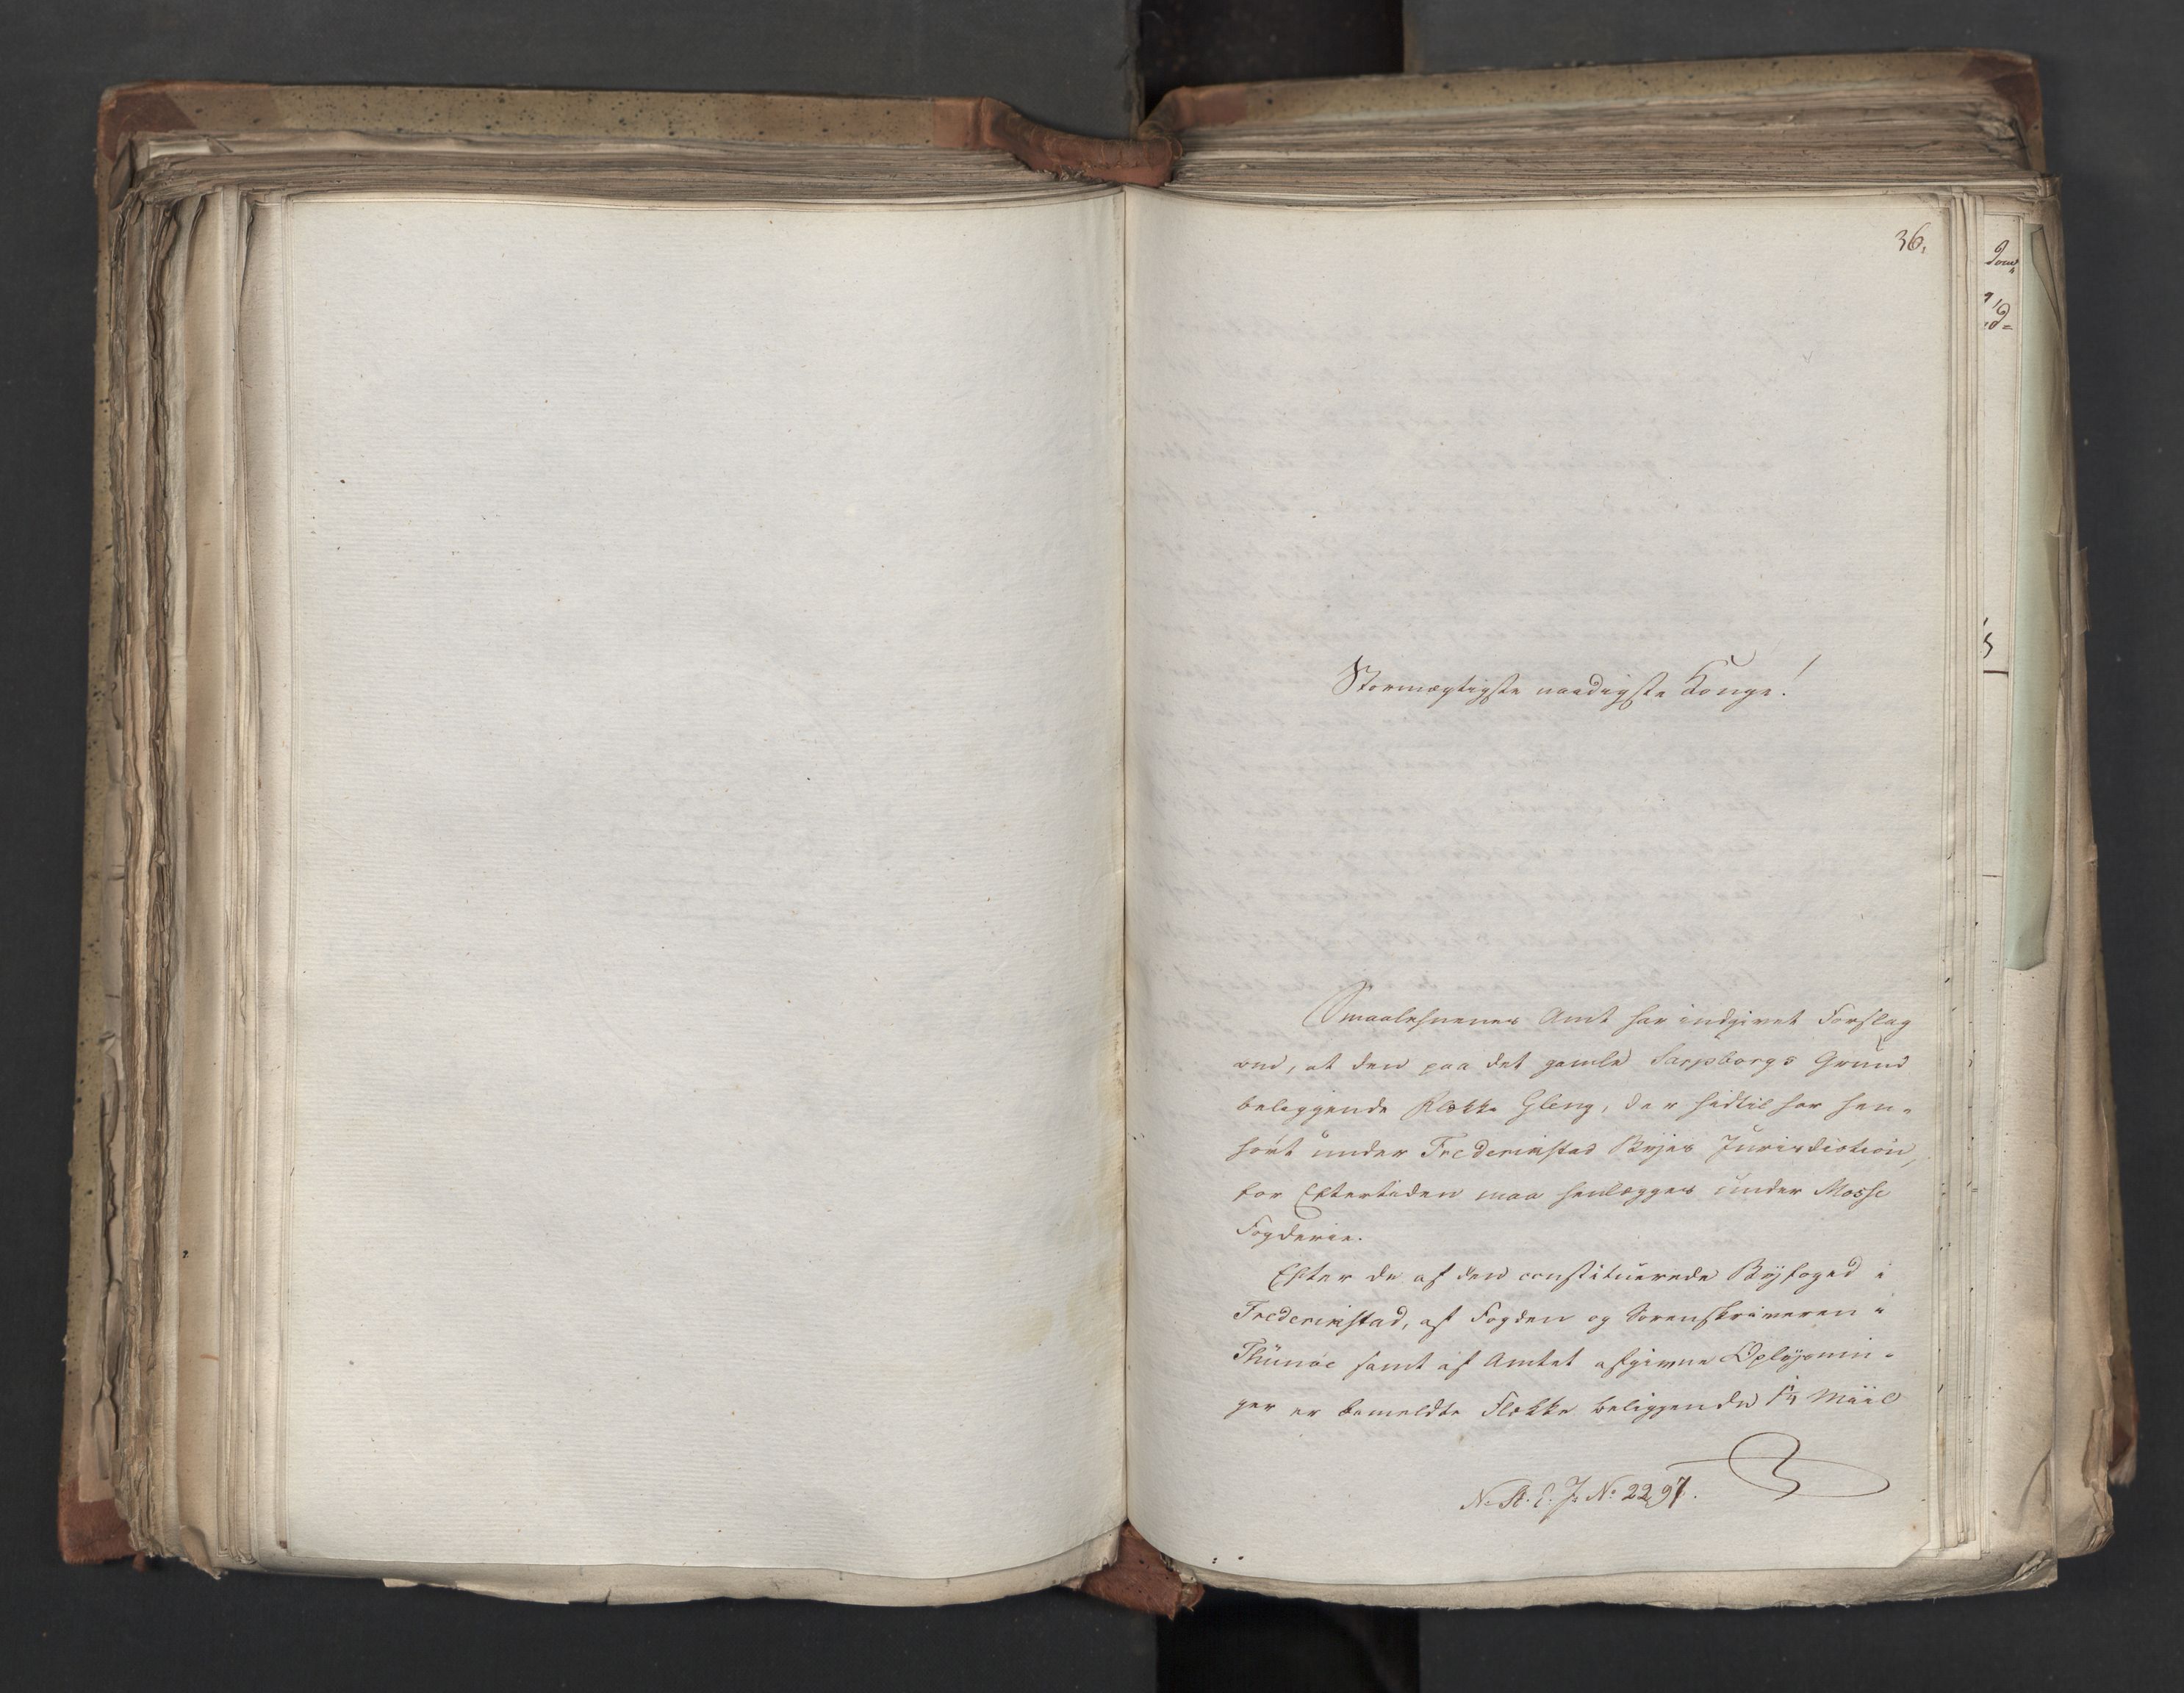 36.
Stormægtigste naadigste Konge!
Smaalehnenes Amt har indgivet Forslag
om, at den paa det gamle Sarpsborgs Grund
beliggende Flække Gleng, der hidtil har hen-
hört under Frederikstad Byes Jurisdiction,
for Eftertiden maa henlægges under Mosse
Fogderie.
Efter de af den constituerede Byfoged i
Frederikstad, af Fogden og Sorenskriveren i
Thunöe samt af Amtet afgivne Oplysnin-
ger er bemeldte Flække beliggende 1¼ Miil
N. St. E. J. No 2297.